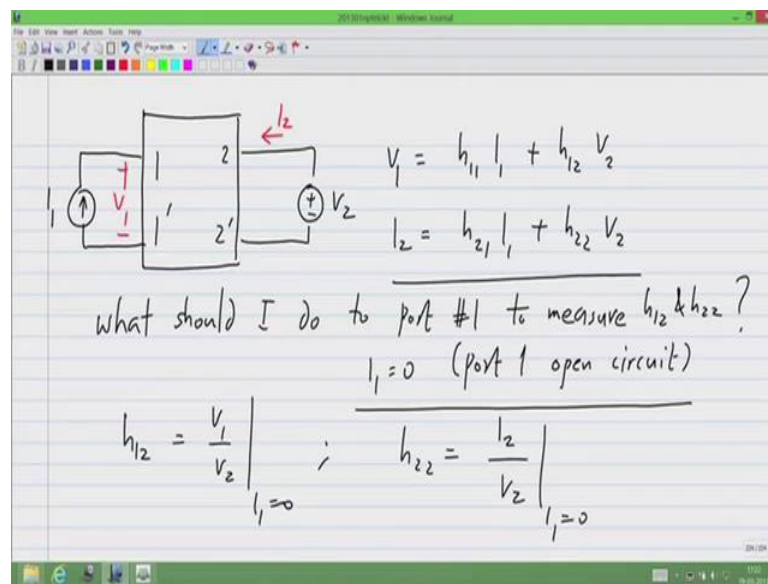 201301nptel.kl - Windows Journal
File Edit View Insert Actions Tools Help
Page Width
B I
I2
1 2
V1 = h11 I1 + h12 V2
I1 + V1 - + - V2
1' 2'
I2 = h21 I1 + h22 V2
what should I do to port #1 to measure h12 & h22 ?
I1 = 0 (port 1 open circuit)
h12 = V1/V2 | I1=0 ; h22 = I2/V2 | I1=0